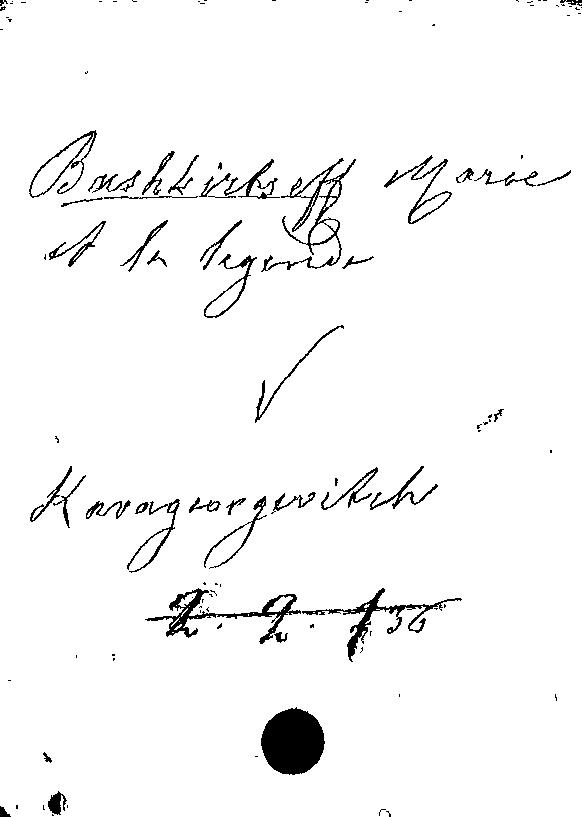 Bashkirtseff Marie
et la legende
✓
Karageorgevitch
2. 2. 136